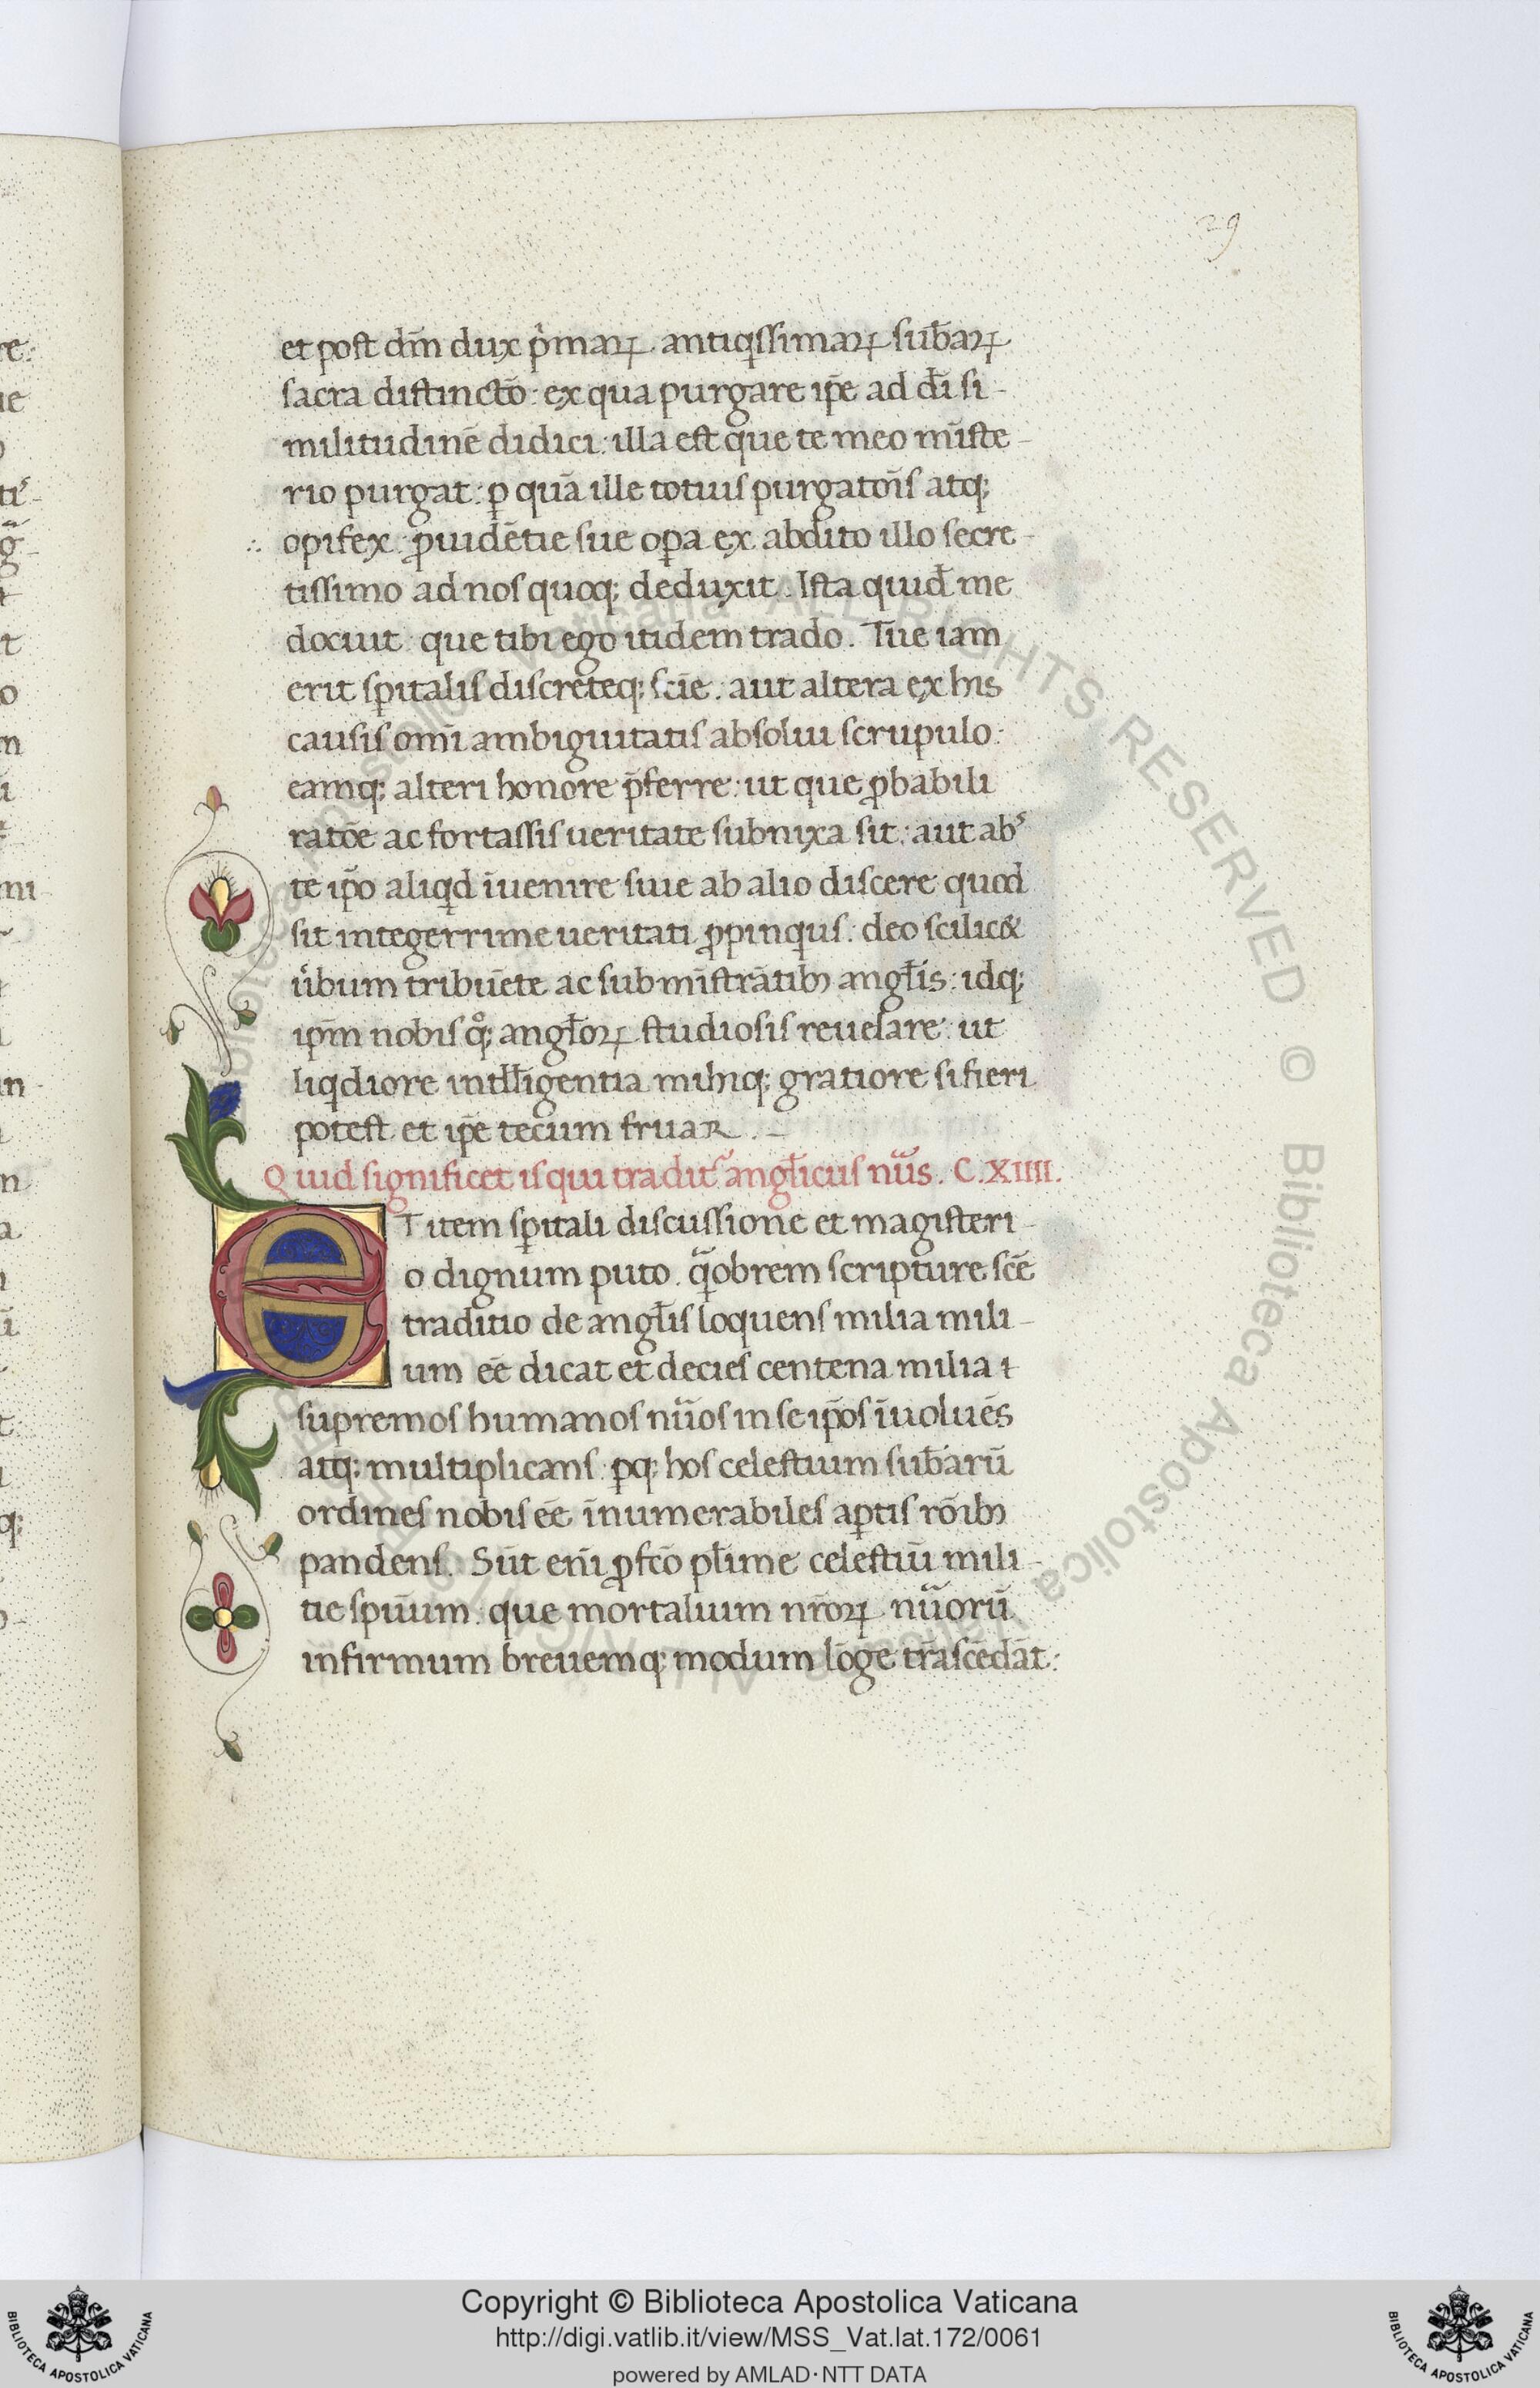 29
et post dm̄ dux p̓maꝝ antiqssimaꝝ sub̄aꝝ
sacra distinctō: ex qua purgare ip̄e ad dī si-
militudinē didici: illa est que te meo mīste-
rio purgat: ꝑ quā ille totius purgatōīs atq;
opifex ꝓuidētie sue oꝑa ex abdito illo secre-
tissimo ad nos quoq; deduxit. Ista quid̄ me
docuit que tibi ego itidem trado. Tūe iam
erit sꝑitalis discreteq; scīe: aut altera ex his
causis omī ambiguitatis absolui scrupulo:
eamq; alteri honore p̄ferre: ut que ꝓbabili
ratōe ac fortassis ueritate subnixa sit: aut abs
te ip̄o aliqd īuenire siue ab alio discere quod
sit integerrime ueritati ꝓpinquus: deo scilic&
u̓bum tribuēte ac submīstrātibꝫ angl̄is: idq;
ip̄m nobis qͦq; angl̄oꝝ studiosis reuelare: ut
liqdiore intll̄igentia mihiq; gratiore si fieri
potest et ip̄e tecum fruar. -
Quid significet is qui tradit᷑ angl̄icus nūs. C. XIIII.
ET item sꝑitali discussione et magisteri-
o dignum puto. qᷓobrem scripture scē
traditio de angl̄is loquens milia mili-
um eē dicat et decies centena milia ⁊
supremos humanos nūos in se ip̄os īuoluēs
atq; multiplicans: ꝑq; hos celestium sub̄arū
ordines nobis eē īnumerabiles aptis rōībꝫ
pandens. Sūt enī ꝓfcō pl̄ime celestiū mili-
tie spūum: que mortalium nr̄oꝝ nūorū
infirmum breuemq; modum lōge trāscēdāt:
Copyright © Biblioteca Apostolica Vaticana
http://digi.vatlib.it/view/MSS_Vat.lat.172/0061
powered by AMLAD·NTT DATA